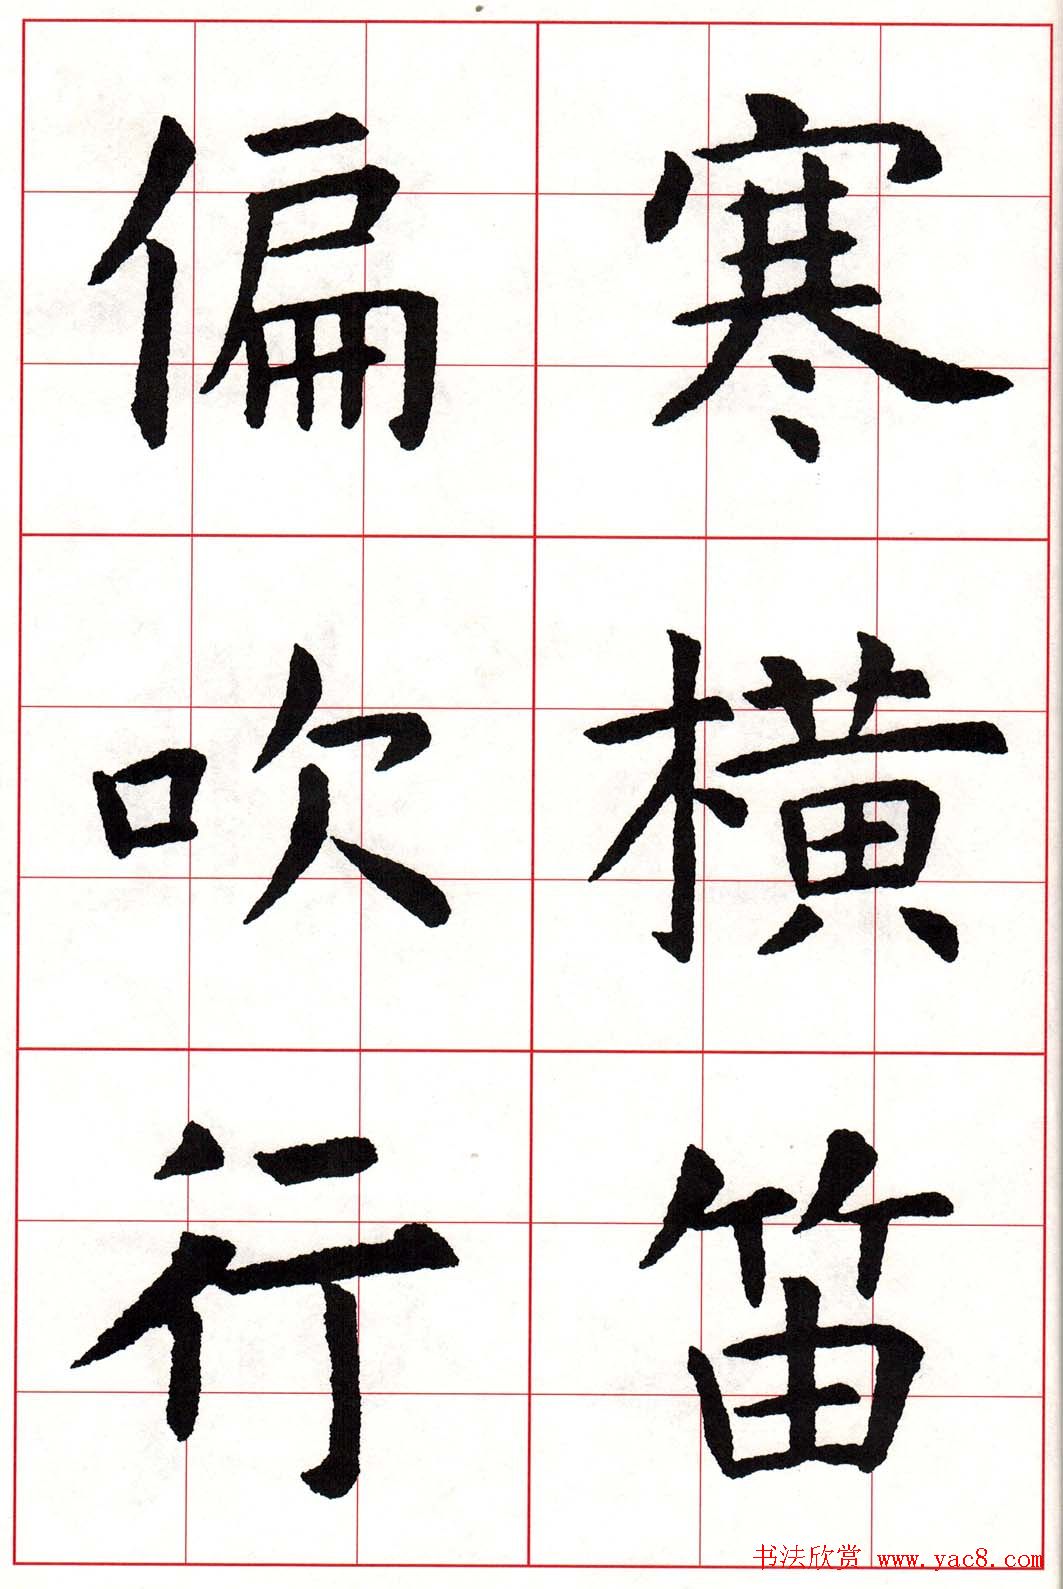 寒橫笛
偏吹行
书法欣赏 www.yac8.com